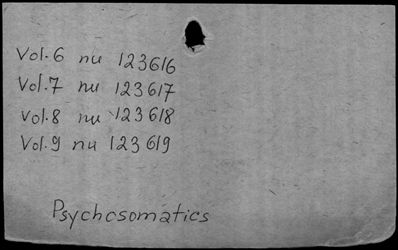 Vol.6 nu 123616
Vol.7 nu 123617
Vol.8 nu 123618
Vol.9 nu 123619
Psychosomatics